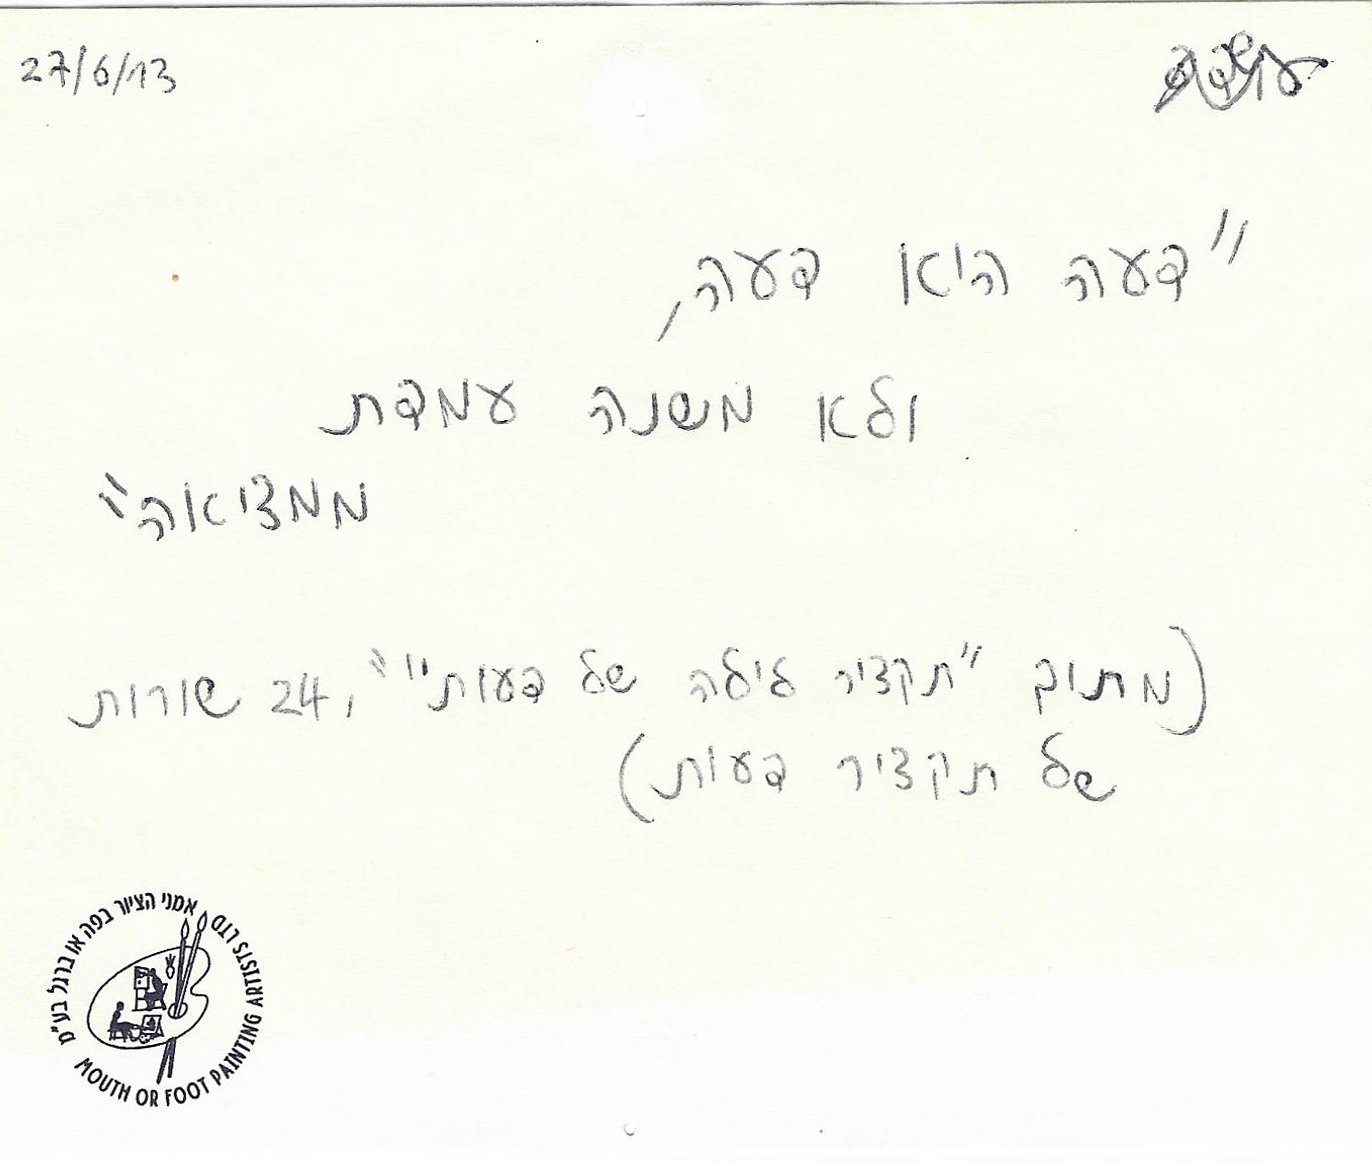 27/6/13
"דעה היא דעה,
ולא משנה עמדת
ממציאה"
(מתוך "תקציר לילה של דעות"", 24 שורות
של תקציר דעות)
אמני הציור בפה או ברגל בע"מ
MOUTH OR FOOT PAINTING ARTISTS LTD